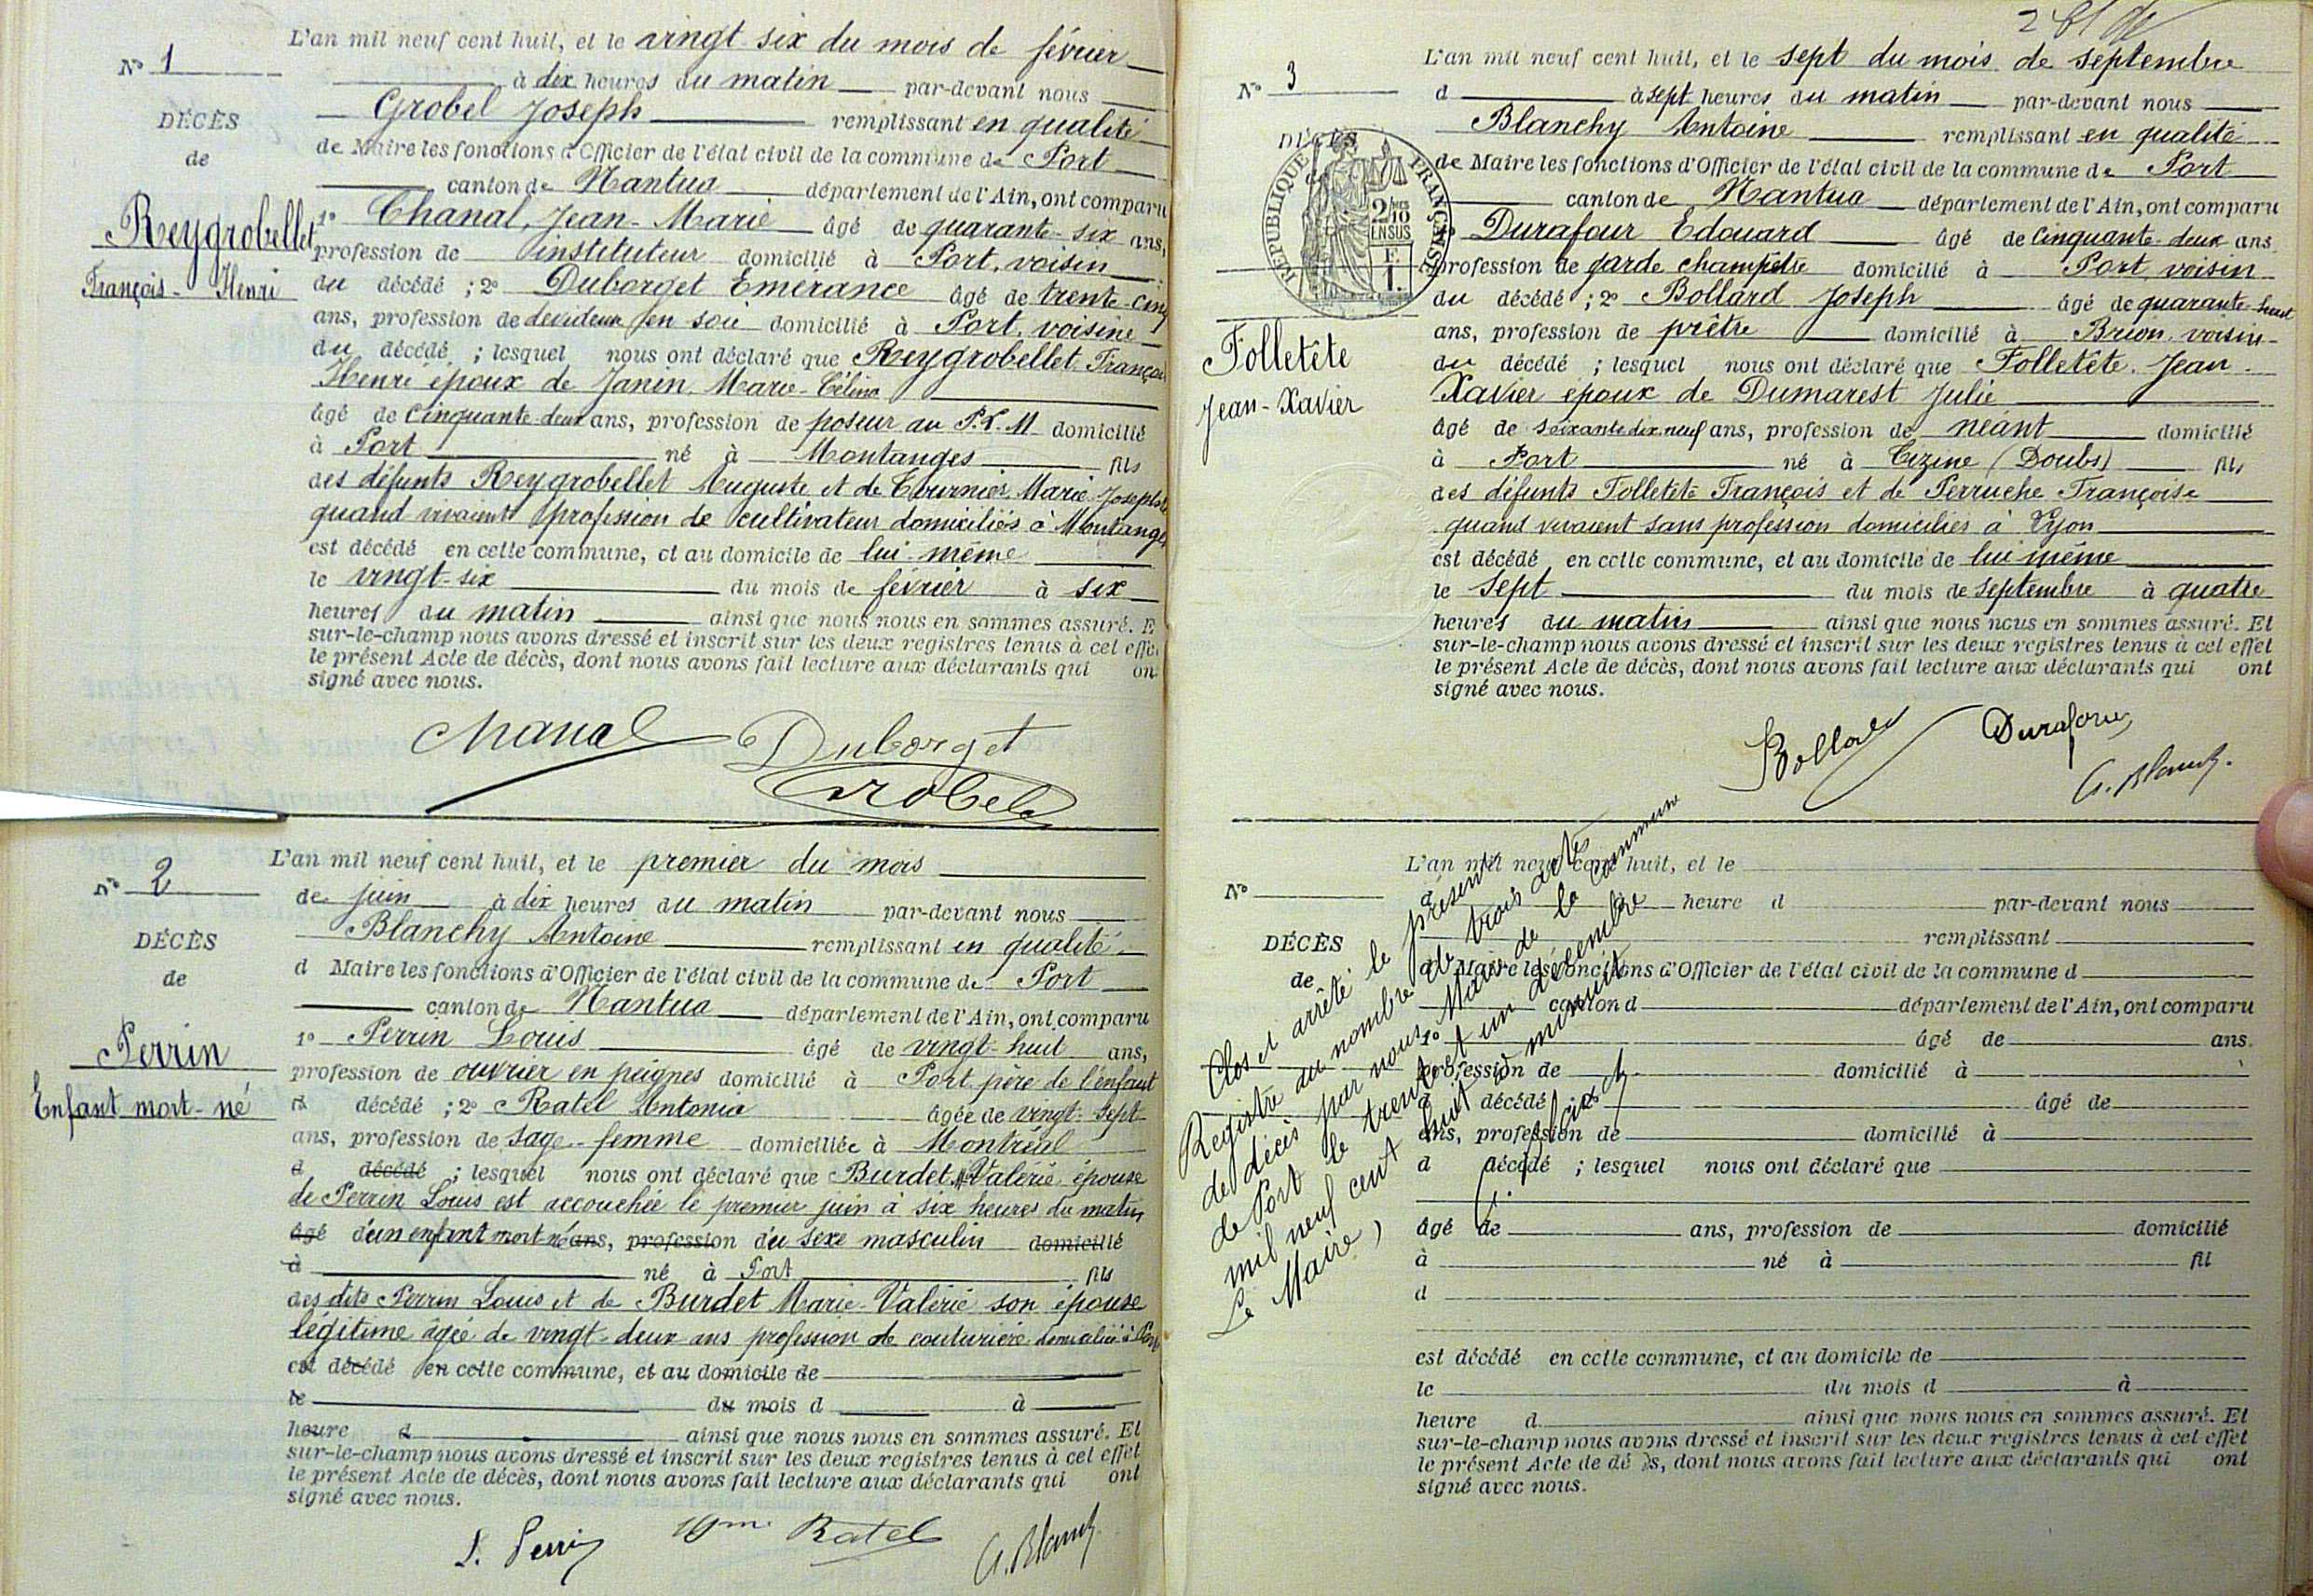 L'an mil neuf cent huit, et le vingt-six du mois de février
N° 1
à dix heures du matin par-devant nous
DÉCÈS
Grobel Joseph remplissant en qualité
de
de Maire les fonctions d'Officier de l'état civil de la commune de Port
canton de Nantua département de l'Ain, ont comparu
Reygrobellet
1° Chanal, Jean-Marie âgé de quarante-six ans,
profession de instituteur domicilié à Port, voisin
François-Henri
du décédé ; 2° Duborget Emerance âgé de trente-cinq
ans, profession de devideuse en soie domicilié à Port, voisine
du décédé ; lesquel nous ont déclaré que Reygrobellet François
Henri époux de Janin Marie-Célina
âgé de cinquante-deux ans, profession de poseur au P.L.M domicilié
à Port né à Montanges fils
des défunts Reygrobellet Auguste et de Tournier Marie Josephte
quand vivaient profession de cultivateur domiciliés à Montanges
est décédé en cette commune, et au domicile de lui-même
le vingt-six du mois de février à six
heures du matin ainsi que nous nous en sommes assuré. E
sur-le-champ nous avons dressé et inscrit sur les deux registres tenus à cet effet
le présent Acte de décès, dont nous avons fait lecture aux déclarants qui on
signé avec nous.
Chanal Duborget
Grobel
L'an mil neuf cent huit, et le premier du mois
N° 2
de juin à dix heures du matin par-devant nous
DÉCÈS
Blanchy Antoine remplissant en qualité
de
d Maire les fonctions d'Officier de l'état civil de la commune de Port
canton de Nantua département de l'Ain, ont comparu
Perrin
1° Perrin Louis âgé de vingt-huit ans,
profession de ouvrier en peignes domicilié à Port père de l'enfant
Enfant mort-né
d décédé ; 2° Ratel Antonia âgée de vingt-sept
ans, profession de sage-femme domiciliée à Montréal
d décédé ; lesquel nous ont déclaré que Burdet Mie Valérie épouse
de Perrin Louis est accouchée le premier juin à six heures du matin
âgé d'un enfant mort né ans, profession du sexe masculin domicilié
à né à Port fils
des dits Perrin Louis et de Burdet Marie-Valérie son épouse
légitime âgée de vingt-deux ans profession de couturière domiciliée à Port
est décédé en cette commune, et au domicile de
le du mois d à
heure d ainsi que nous nous en sommes assuré. Et
sur-le-champ nous avons dressé et inscrit sur les deux registres tenus à cet effet
le présent Acte de décès, dont nous avons fait lecture aux déclarants qui ont
signé avec nous.
L. Perrin Ratel A. Blanchy
L'an mil neuf cent huit, et le sept du mois de septembre
N° 3
d à sept heures du matin par-devant nous
DÉCÈS
RÉPUBLIQUE FRANÇAISE
2/10 EN SUS
Blanchy Antoine remplissant en qualité
de Maire les fonctions d'Officier de l'état civil de la commune de Port
canton de Nantua département de l'Ain, ont comparu
Durafour Edouard âgé de cinquante-deux ans
profession de garde champêtre domicilié à Port, voisin
du décédé ; 2° Bollard Joseph âgé de quarante-huit
ans, profession de prêtre domicilié à Brion, voisin
Folletête
Jean-Xavier
du décédé ; lesquel nous ont déclaré que Folletête Jean
Xavier époux de Dumarest Julie
âgé de soixante dix neuf ans, profession de néant domicilié
à Port né à Cizine (Doubs) fils
des défunts Folletête François et de Perruche Françoise
quand vivaient sans profession domiciliés à Lyon
est décédé en cette commune, et au domicile de lui même
le sept du mois de septembre à quatre
heures du matin ainsi que nous nous en sommes assuré. Et
sur-le-champ nous avons dressé et inscrit sur les deux registres tenus à cet effet
le présent Acte de décès, dont nous avons fait lecture aux déclarants qui ont
signé avec nous.
Bollard Durafour
A. Blanchy
L'an mil neuf cent huit, et le
N°
d à heure d par-devant nous
DÉCÈS
remplissant
de
d Maire les fonctions d'Officier de l'état civil de la commune d
canton d département de l'Ain, ont comparu
1° âgé de ans.
profession de domicilié à
d décédé ; 2° âgé de
ans, profession de domicilié à
d décédé ; lesquel nous ont déclaré que
âgé de ans, profession de domicilié
à né à fil
d
est décédé en cette commune, et au domicile de
le du mois d à
heure d ainsi que nous nous en sommes assuré. Et
sur-le-champ nous avons dressé et inscrit sur les deux registres tenus à cet effet
le présent Acte de décès, dont nous avons fait lecture aux déclarants qui ont
signé avec nous.
Clos et arrêté le présent
Registre au nombre de trois actes
de décès par nous, Maire de la commune
de Port le trente et un décembre
mil neuf cent huit à minuit
Le Maire,
A. Blanchy